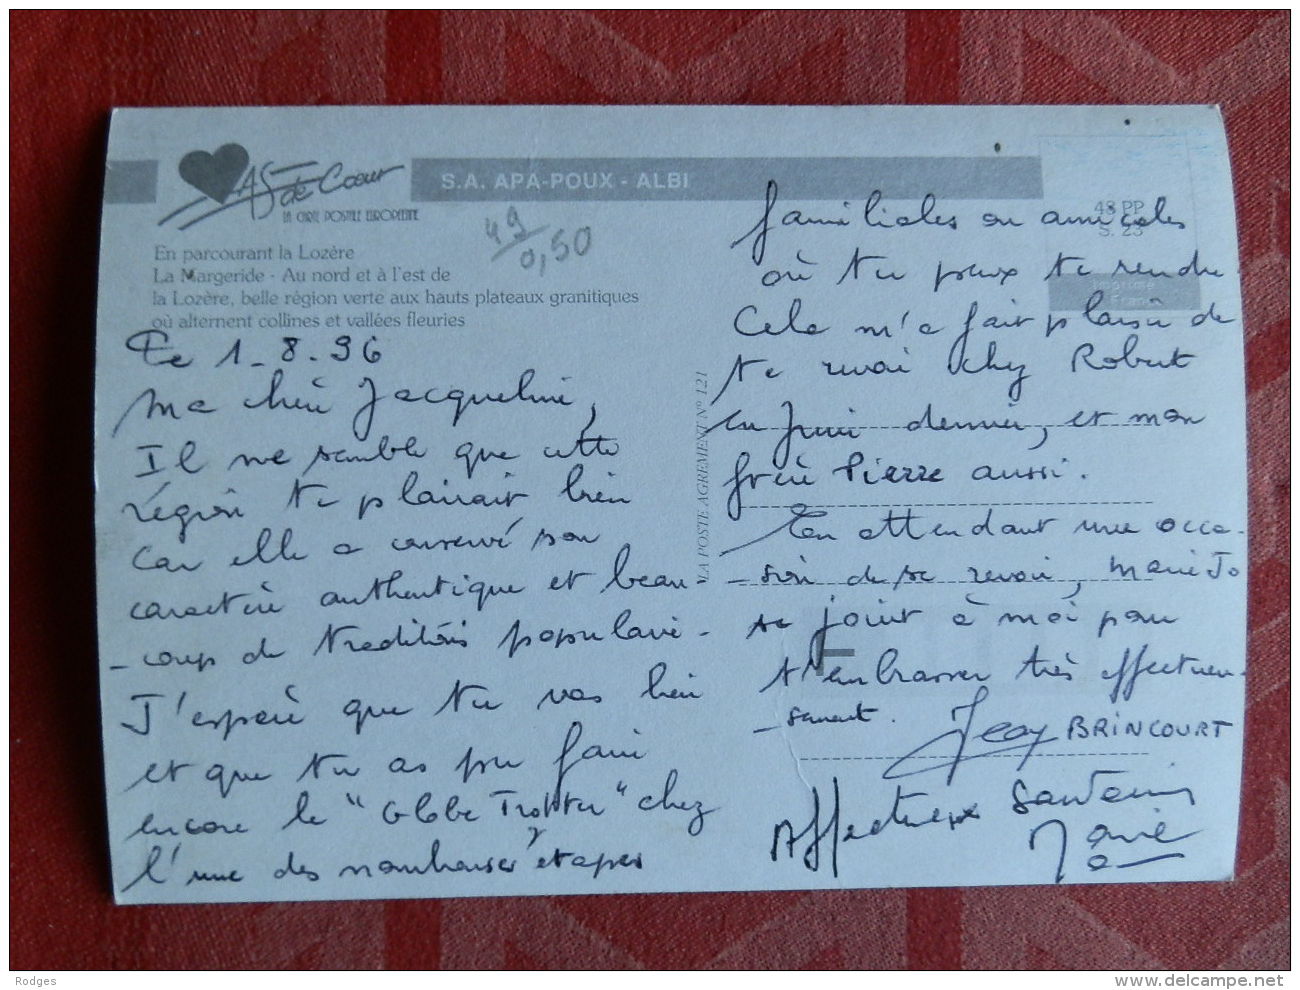 AS de Cœur
LA CARTE POSTALE EUROPEENNE
S.A. APA-POUX - ALBI
49
0,50
48 PP
S. 23
Imprimé
France
En parcourant la Lozère
La Margeride - Au nord et à l'est de
la Lozère, belle région verte aux hauts plateaux granitiques
où alternent collines et vallées fleuries
Le 1-8-96
Ma chère Jacqueline,
Il me semble que cette
région te plairait bien
car elle a conservé son
caractère authentique et beau-
-coup de traditions populaires-
J'espère que tu vas bien
et que tu as pu faire
encore le "Globe Trotter" chez
l'une des nombreuses étapes
LA POSTE AGREMENT N° 121
familiales ou amicales
où tu peux te rendre.
Cela m'a fait plaisir de
te revoir chez Robert
en juin dernier, et mon
frère Pierre aussi.
En attendant une occa-
-sion de se revoir, Marie Jo
se joint à moi pour
t'embrasser très affectueu-
-sement.
Jean BRINCOURT
Affectueux Souvenir
Marie
Rodges
www.delcampe.net